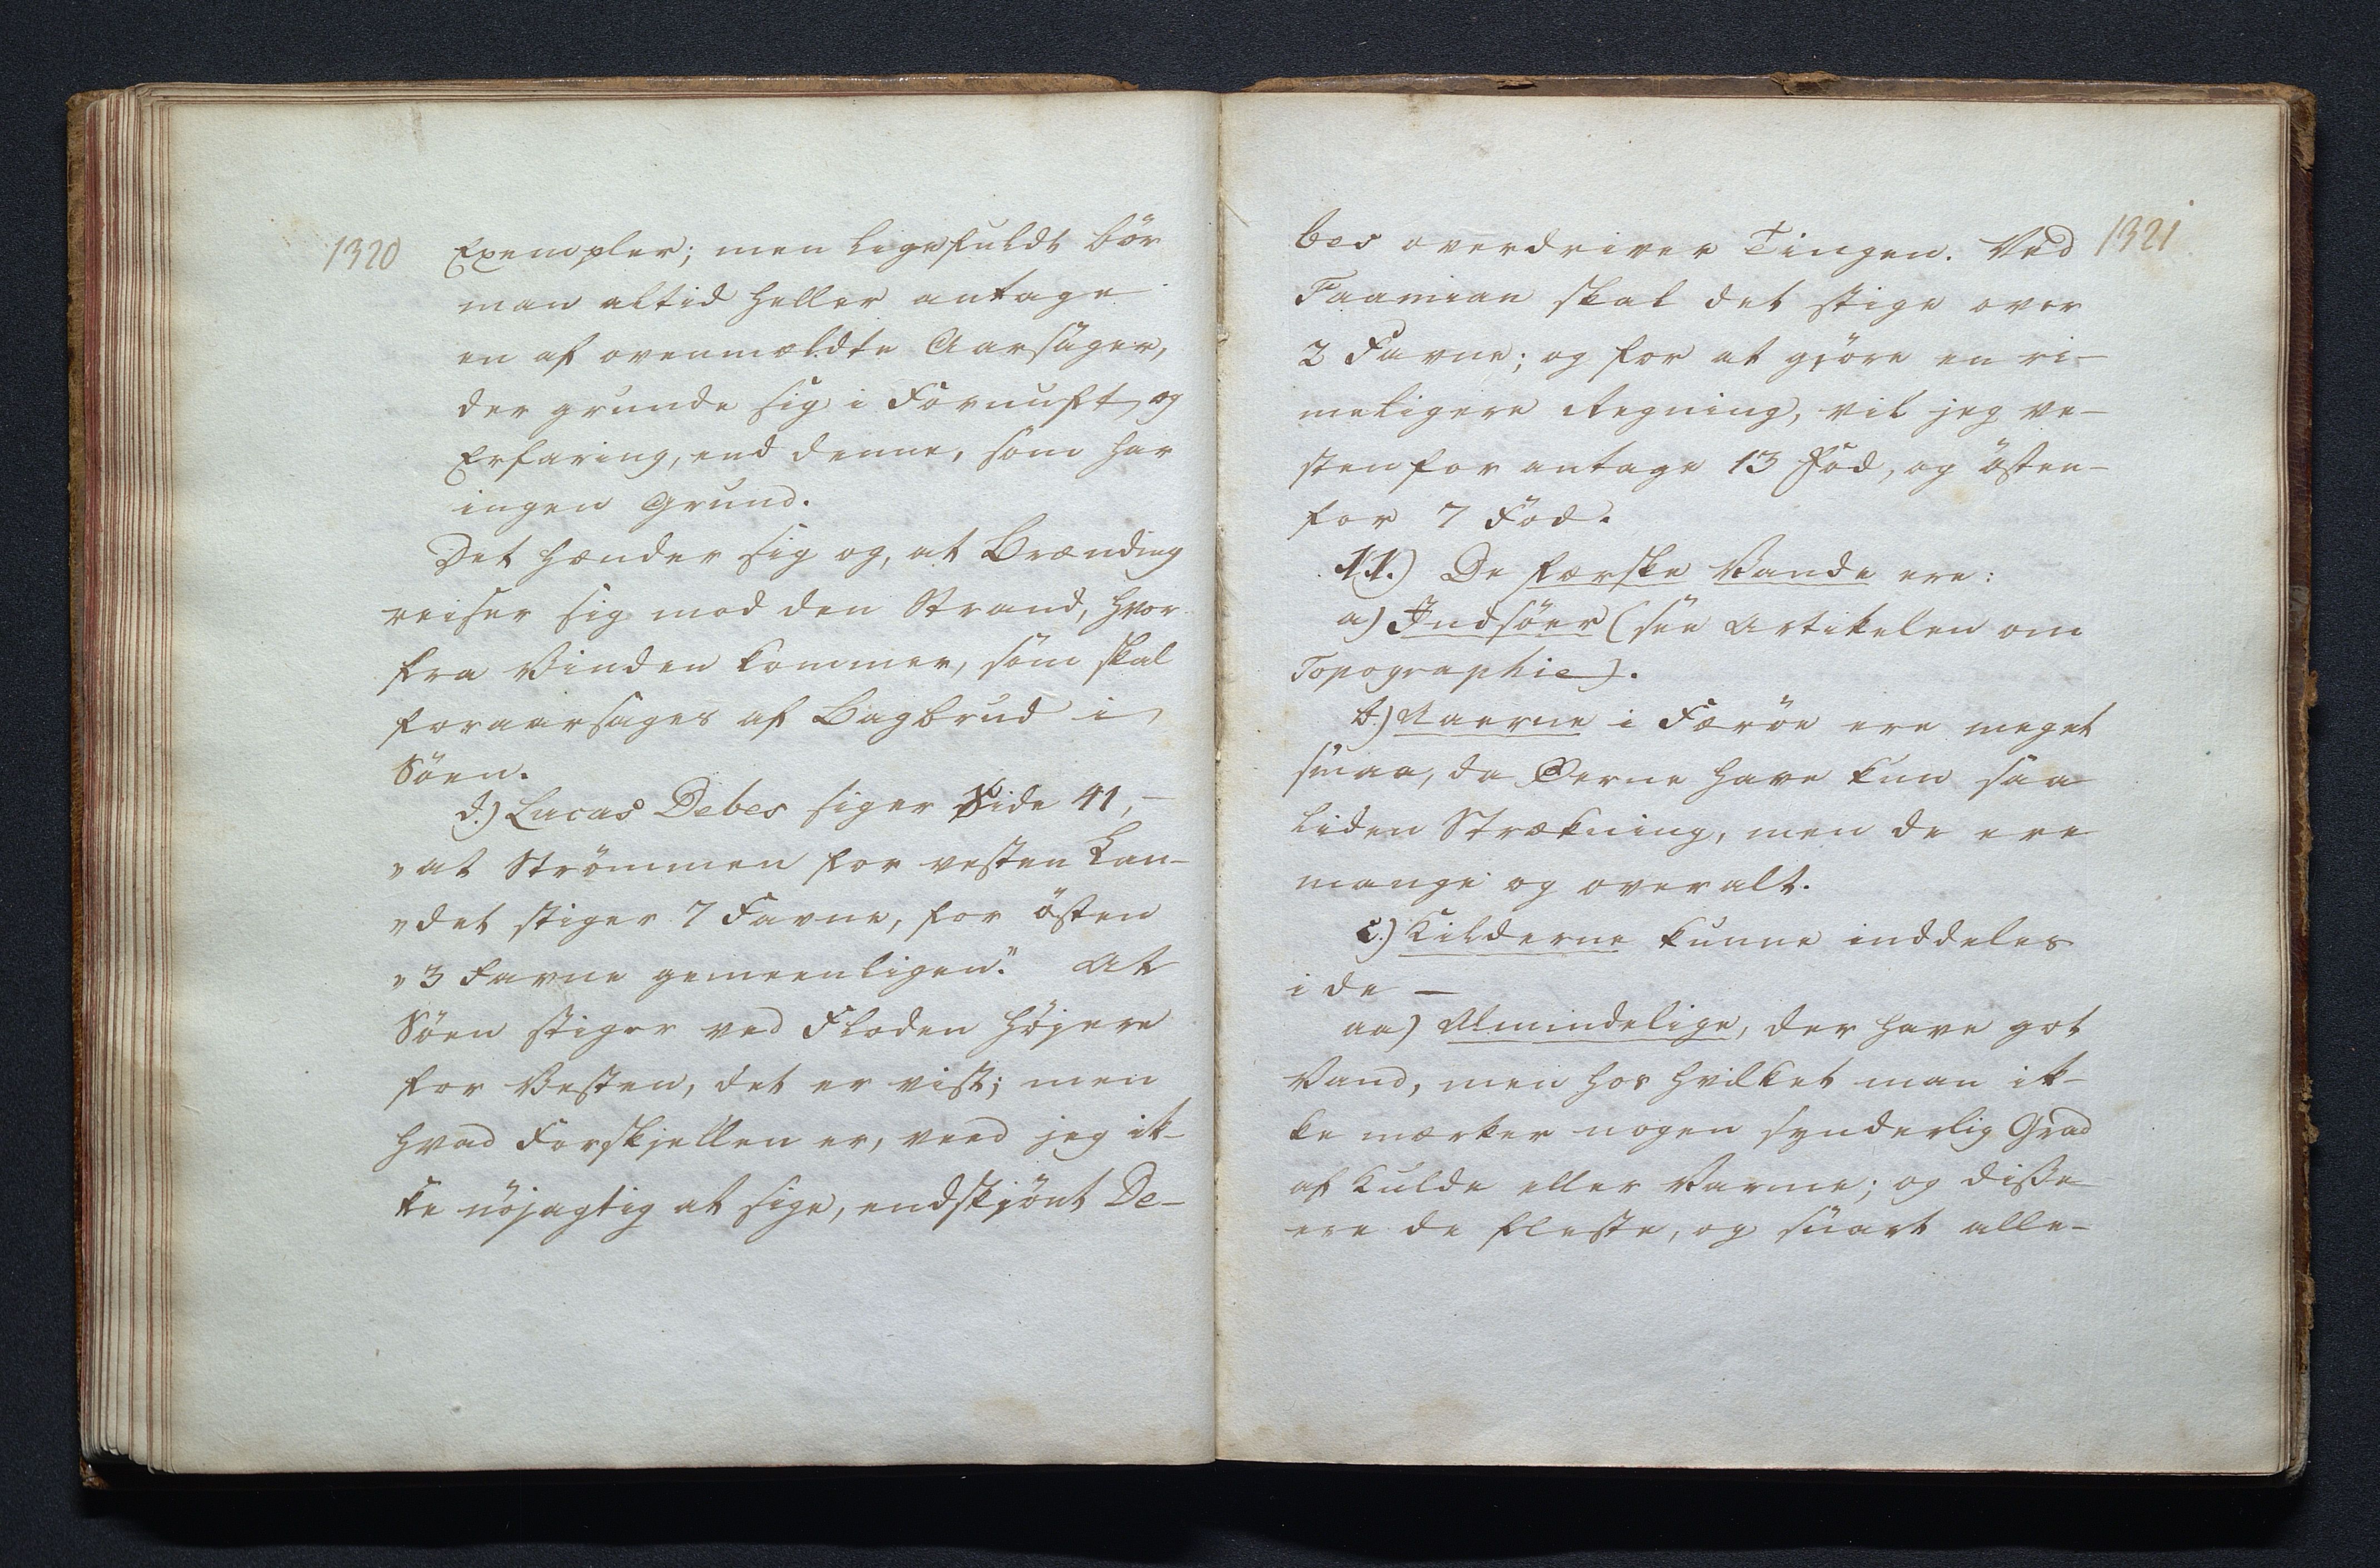 1320
Exempler; men ligefuldt bör
man altid heller antage
en af ovenmældte Aarsager,
der grunde sig i Fornuft og
Erfaring, end denne, som har
ingen Grund.
Det hænder sig og, at Brænding
reiser sig mod den Strand, hvor
fra Vinden kommer, som skal
foraarsages af Bagbrud i
Söen.
d.) Lucas Debes siger Side 41, –
„at Strömmen for vesten Lan-
„det stiger 7 Favne, for östen
„3 Favne gemeenligen." At
Söen stiger ved Floden höjere
for Vesten, det er vist; men
hvad Forskjellen er, veed jeg ik-
ke nöjagtig at sige, endskjönt De-
1321
bes overdriver Tingen. Ved
Faamian skal det stige over
2 Favne; og for at gjöre en ri-
meligere Regning, vil jeg ve-
stenfor antage 13 Fod, og östen-
for 7 Fod.
11.) De færske Vande ere:
a) Indsöer (see Artikelen om
Topographie).
b.) Aaerne i Færöe ere meget
smaa, da Öerne have kun saa
liden Strækning, men de ere
mange og overalt.
c.) Kilderne kunne inddeles
i de –
aa) Almindelige, der have got
Vand, men hos hvilket man ik-
ke mærker nogen synderlig Grad
af Kulde eller Varme; og disse
ere de fleste, og snart alle-